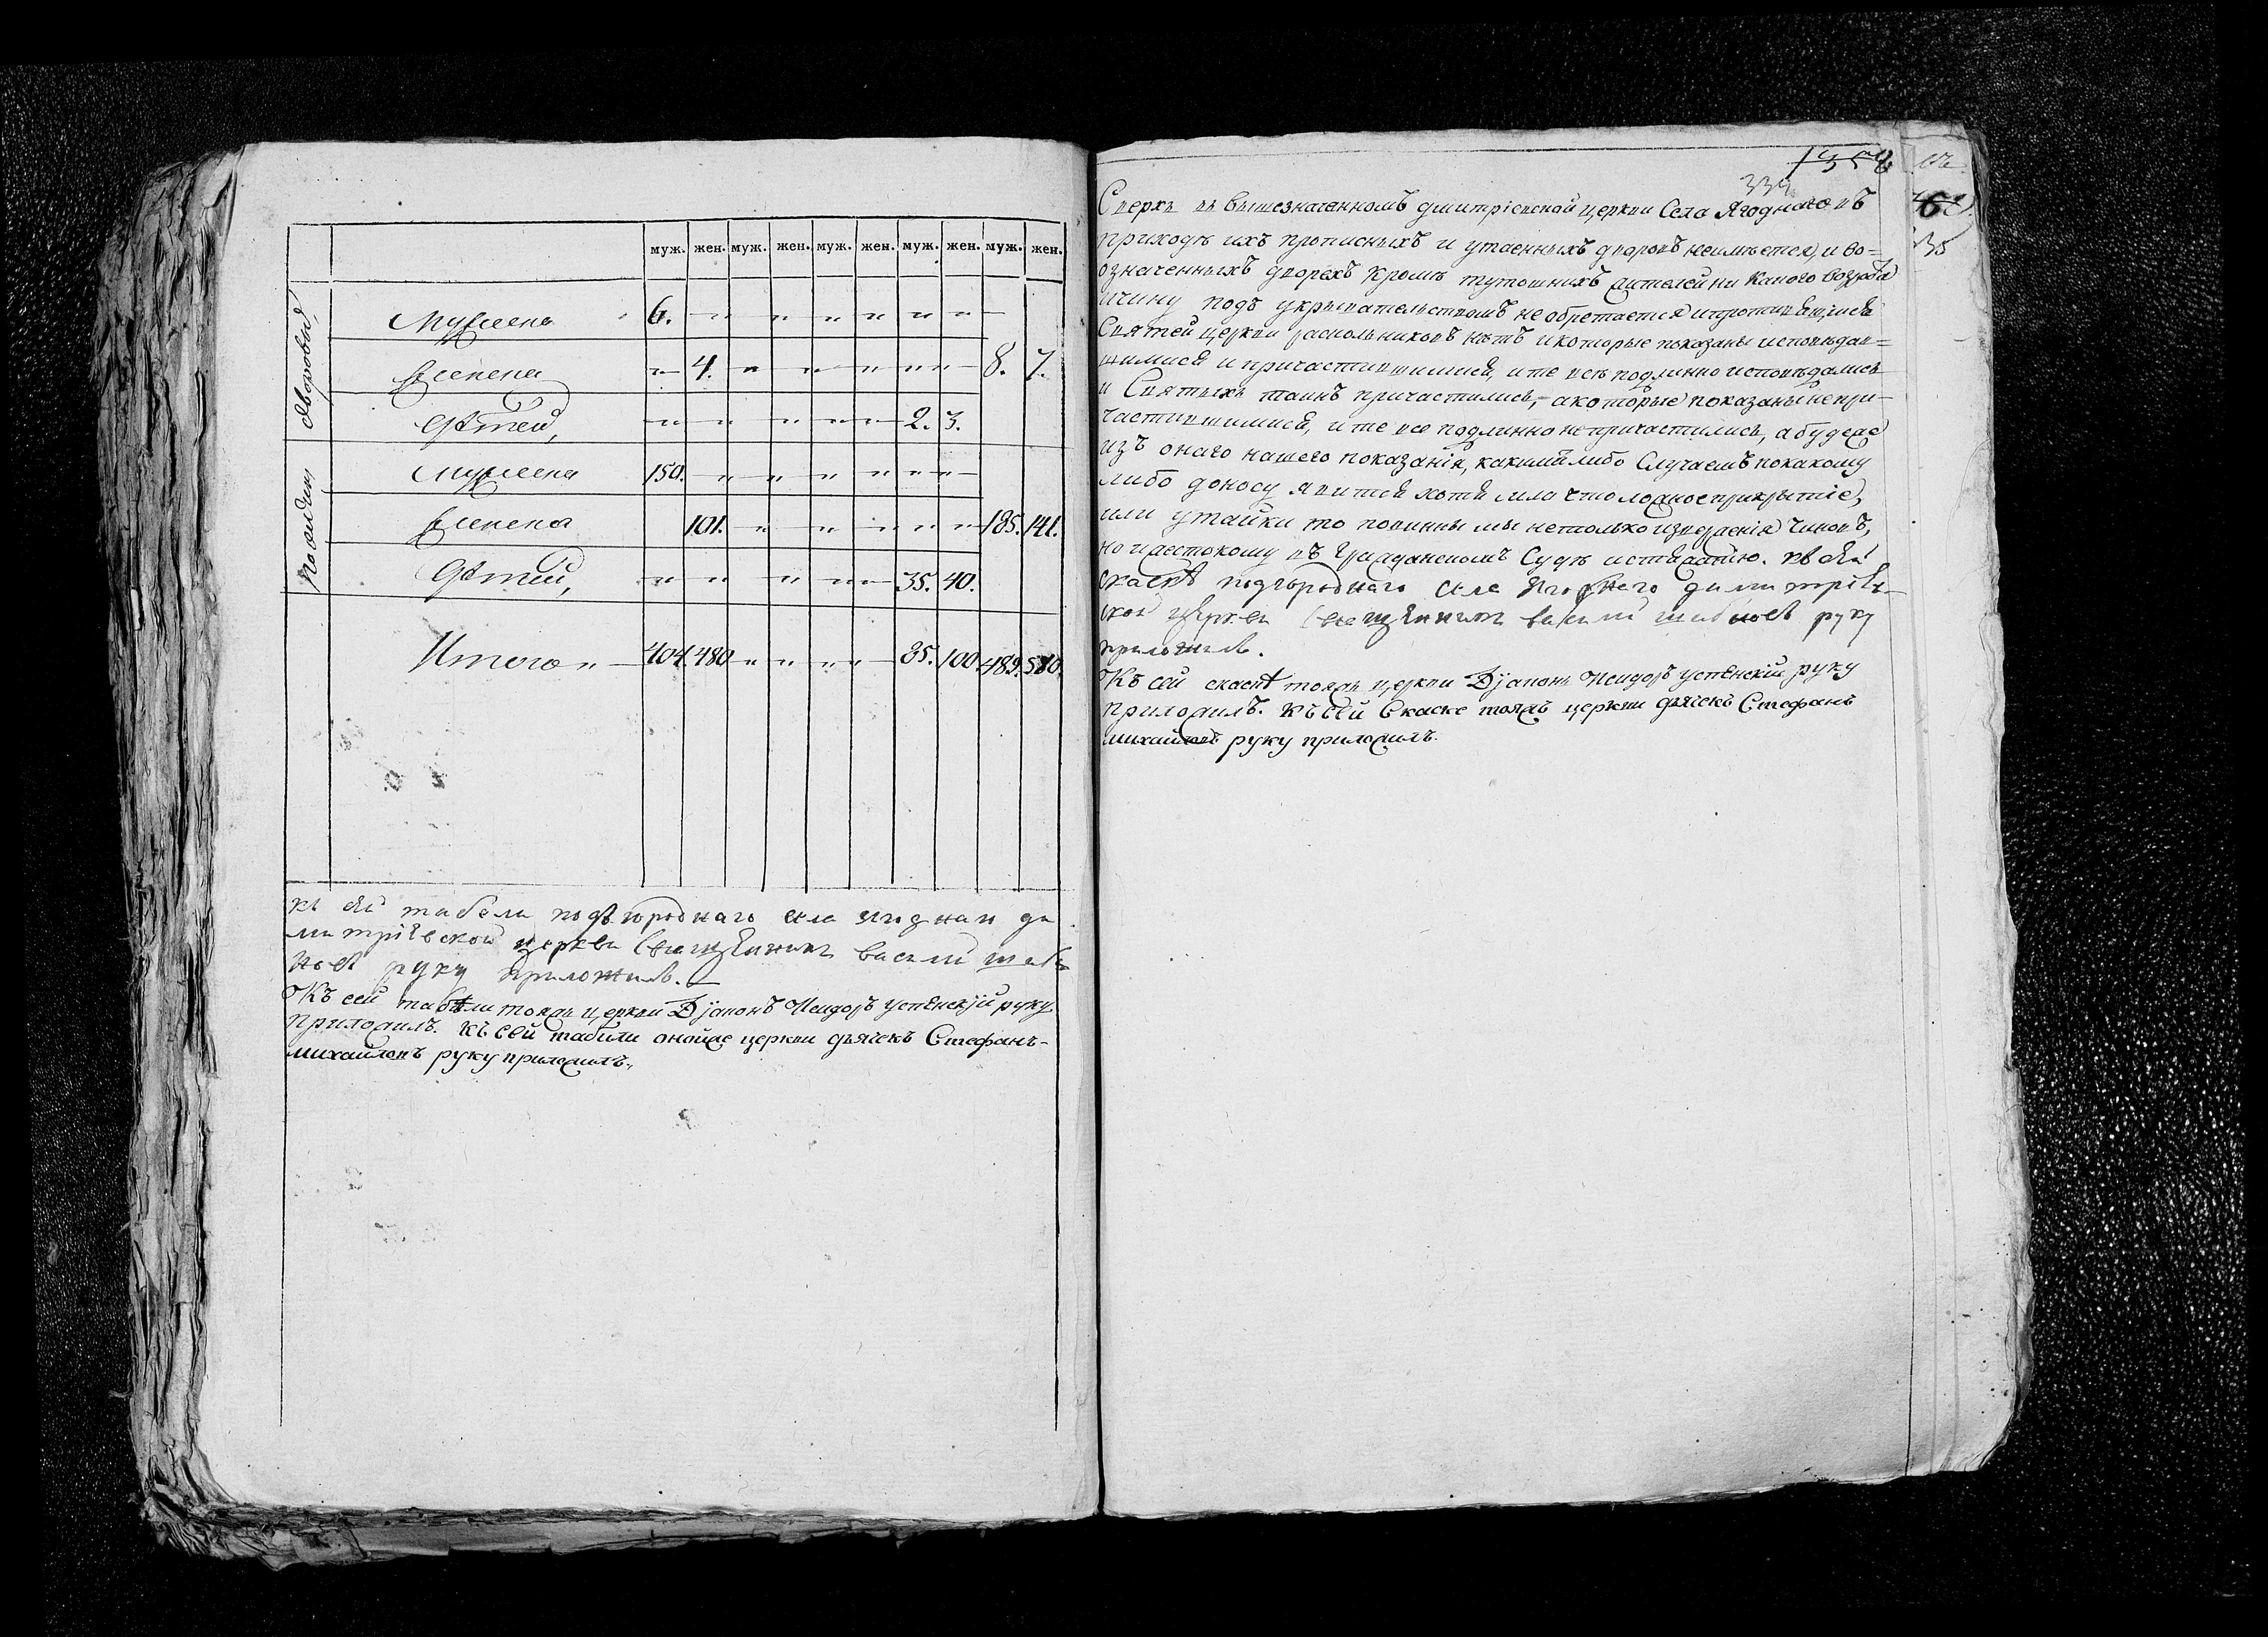 муж. жен. муж. жен. муж. жен. муж. жен. муж. жен.
Дворовыя
Мужеска 6. " " " " " " "
Женска " 4. " " " " " " 8. 7.
Детей, " " " " " 2. 3.
Мужеска 150. " " " " " "
Женска 101. " " " " " " 185. 141.
Детей, " " " " " 35. 40.
Итого " 404 480 " " " " 85. 100 489. 580.
къ сей табели подъгороднаго села ди
митриевской церкви священникъ василй
руку приложилъ.
Къ сей табѣли тояжъ церкви Дїаконъ Исидоръ Успенскїй руку
приложилъ. къ сей табели онойже церкви дьячекъ Стефанъ
михайловъ руку приложилъ.,
339
35
Сверхъ въ вышезначенномъ дмитрїевской церкви Села Ягоднаго въ
приходѣ ихъ прописныхъ и утаенныхъ дворовъ неимѣется, и во=
означенныхъ дворехъ кромѣ тутошнихъ жителей ни какого возраста
ичину подъ укрывательствомъ не обретается ипротивящихся
Святей церкви раскольниковъ нѣтъ икоторые показаны исповѣдав=
шимися и причастившимися, ите всѣ подлинно исповѣдались
и Святыхъ таинъ причастились, акоторые показаны непри-
частившимися, ите все подлинно непричастились, а буде же
изъ онаго нашего показанїя, какимъ либо Случаемъ покакому
либо доносу явится хотя мало что ложное прикрытїе,
или утайки то повинны мы нетолько извержения чиновъ,
но ижестокому въ Гражданскомъ Судѣ истязанїю. къ сей
скаскѣ подгороднаго села Ягоднаго димитрїев-
ской церкви священникъ василй руку
приложилъ.
Къ сей скаскѣ тояжъ церкви Дїаконъ Исидоръ Успенскїй руку
приложилъ. къ сей Скаске тояжъ церкви дьячекъ Стефанъ
михайловъ руку приложилъ.